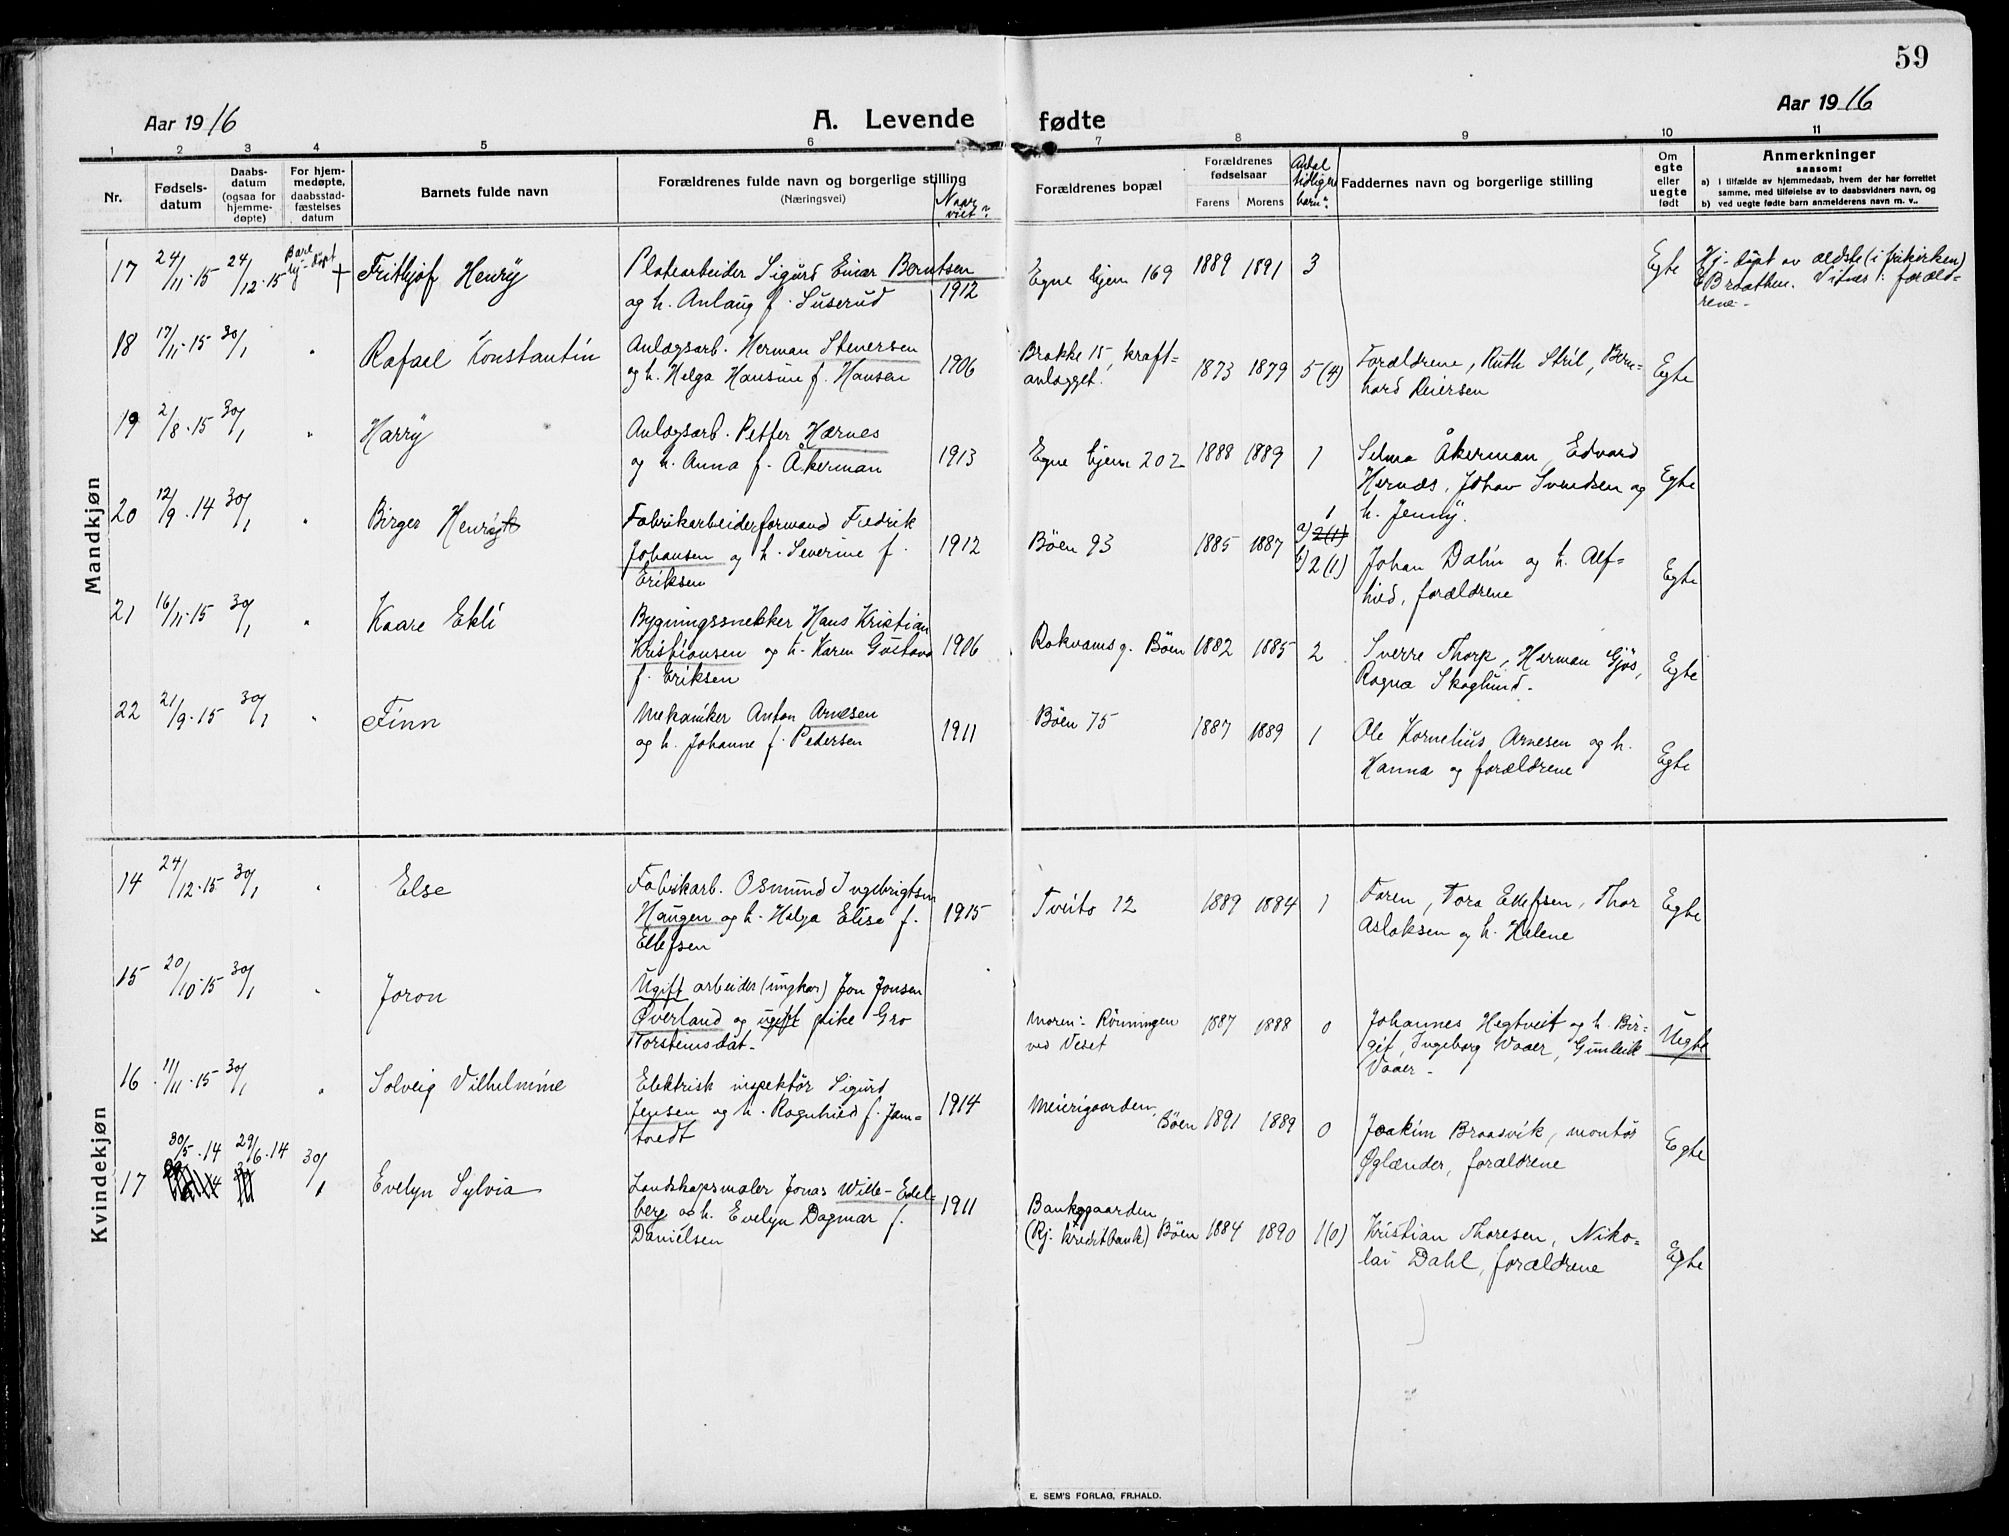 59
Aar 1916
A. Levende fødte
Aar 1916
1 2 3 4 5 6 7 8 9 10 11
Nr.
Fødsels-
datum
Daabs-
datum
(ogsaa for
hjemme-
døpte)
For hjem-
medøpte,
daabsstad-
fæstelses
datum
Barnets fulde navn
Forældrenes fulde navn og borgerlige stilling
(Næringsvei)
Naar
viet?
Forældrenes bopæl
Forældrenes
fødselsaar
Farens Morens
Antal
tidligere
barn?
Faddernes navn og borgerlige stilling
Om
egte
eller
uegte
født
Anmerkninger
saasom:
a) i tilfælde av hjemmedaab, hvem der har forrettet
samme, med tilføielse av to daabsvidners navn, og
b) ved uegte fødte barn anmelderens navn m. v..
Mandkjøn
17 24/11-15 24/12-15 Bare hj-døpt + Frithjof Henry
Platearbeider Sigurd Einar Berntsen
og h. Anlaug f. Suserud
1912
Egne hjem 169 1889 1891 3
Egte
Hj-døpt av ældste (i frikirken)
E Braathen. Vitner: foræld-
rene-
18 17/11-15 30/1 " Rafael Konstantin
Anlægsarb. Herman Stenersen
og h. Helga Hansine f. Hansen
1906
Brakke 15, kraft-
anlægget.
1873 1879 5(4)
Forældrene, Ruth Stril, Bern-
hard Reiersen
Egte
19 2/8-15 30/1 " Harry
Anlægsarb. Petter Hernes
og h. Anna f. Åkerman
1913
Egne hjem 202 1888 1889 1
Selma Åkerman, Edvard
Hernes, Johan Svendsen og
h. Jenny.
Egte
20 12/9-14 30/1 " Birger Henrÿk
Fabrikarbeiderformand Fredrik
Johansen og h. Severine f.
Eriksen
1912
Bøen 93 1885 1887
1
a) 2(1)
b) 2(1)
Johan Dalin og h. Alf-
hild, forældrene
Egte
21 16/11-15 30/1 " Kaare Ekli
Bygningssnekker Hans Kristian
Kristiansen og h. Karen Gustava
f. Eriksen
1906
Rokvamsg. Bøen 1882 1885 2
Sverre Thorp, Herman Gjøs,
Ragna Skoglund.
Egte
22 21/9-15 30/1 " Finn
Mekaniker Anton Arnesen
og h. Johanne f. Pedersen
1911
Bøen 75 1887 1889 1
Ole Kornelius Arnesen og h.
Hanna og forældrene
Egte
Kvindekjøn
14 24/12-15 30/1 " Else
Fabrikarb. Osmund Ingebrigtsen
Haugen og h. Helga Elise f.
Ellefsen
1915
Tveito 12 1889 1884 1
Faren, Tora Ellefsen, Thor
Aslaksen og h. Helene
Egte
15 20/10-15 30/1 " Joron
Ugift arbeider (ungkar) Jon Jonsen
Øverland og ugift pike Gro
Torsteinsdat-
Moren: Rönningen
ved Veset
1887 1888 0
Johannes Hegtveit og h. Bir-
git, Ingeborg Vaaer, Gunleik
Vaaer-
Uegte
16 11/11-15 30/1 " Solveig Vilhelmine
Elektrisk inspektør Sigurd
Jensen og h. Ragnhild f. Jam-
toedt
1914
Meierigaarden,
Bøen
1891 1889 0
Joakim Braasvik, montør
Øglænder, forældrene
Egte
17 30/5-14 29/6-14 30/1 Evelyn Sylvia
Landskapsmaler Jonas Wille-Edel-
berg og h. Evelyn Dagmar f.
Danielsen
1911
Bankgaarden
(Rj. kreditbank) Bøen
1884 1890 1(0)
Kristian Thoresen, Niko-
lai Dahl, forældrene
Egte
E. SEM'S FORLAG, FR.HALD.